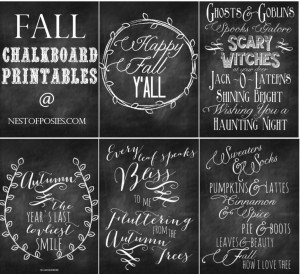 FALL
CHALKBOARD
PRINTABLES
@
NESTOFPOSIES.COM
Happy
Fall
Y'ALL
GHOSTS & GOBLINS
Spooks Galore
SCARY
WITCHES
at your door
JACK-O-LATERNS
SHINING BRIGHT
Wishing You a
HAUNTING NIGHT
Autumn
THE
YEAR'S LAST
loveliest
SMILE
Every leaf speaks
Bliss
TO ME
Fluttering
FROM THE
Autumn
Trees
Sweaters
& Socks
PUMPKINS & LATTES
Cinnamon
& Spice
PIE & BOOTS
LEAVES & BEAUTY
Fall
HOW I LOVE THEE